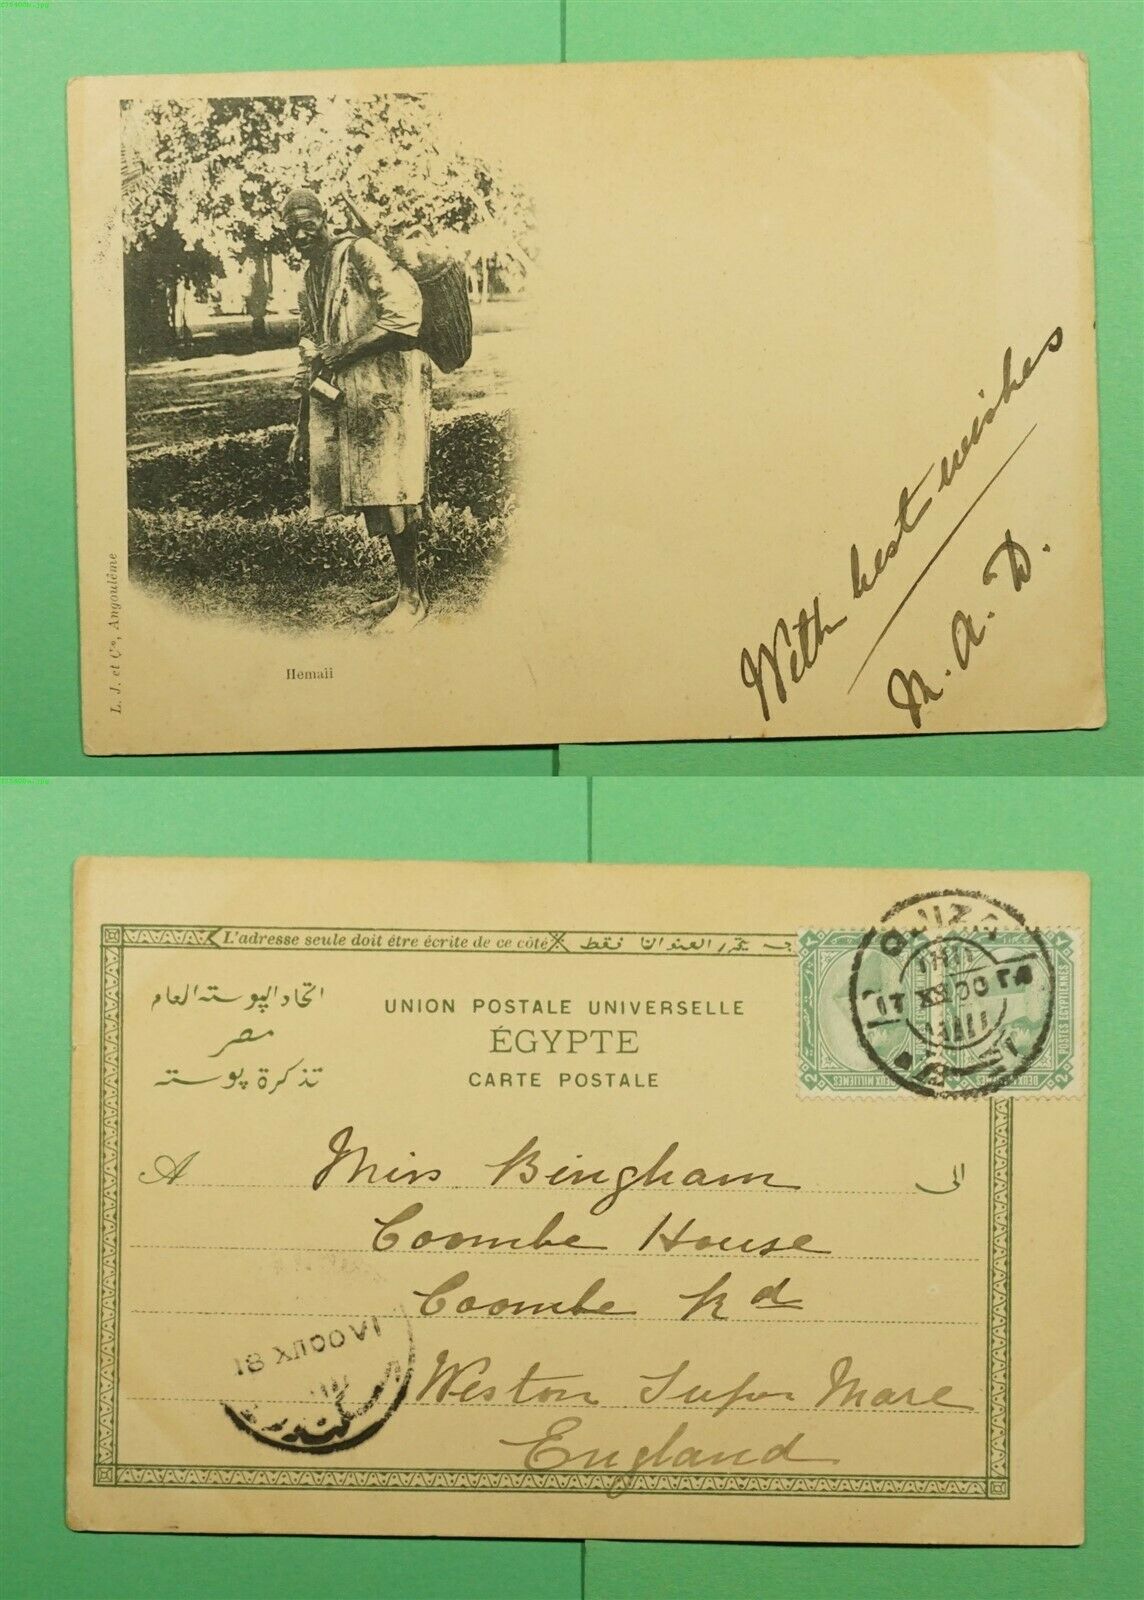 L. J. et Cie, Angoulême
Hemaïi
With best wishes
M. A. D.
L'adresse seule doit être écrite de ce côté
العنوان فقط
اتحاد البوسته العام
مصر
تذكرة بوسته
UNION POSTALE UNIVERSELLE
ÉGYPTE
CARTE POSTALE
POSTES ÉGYPTIENNES
DEUX MILLIÈMES
2
2
17 XII 00
A
الى
Miss Bingham
Coombe House
Coombe Rd
Weston Super Mare
England
18 XII 00